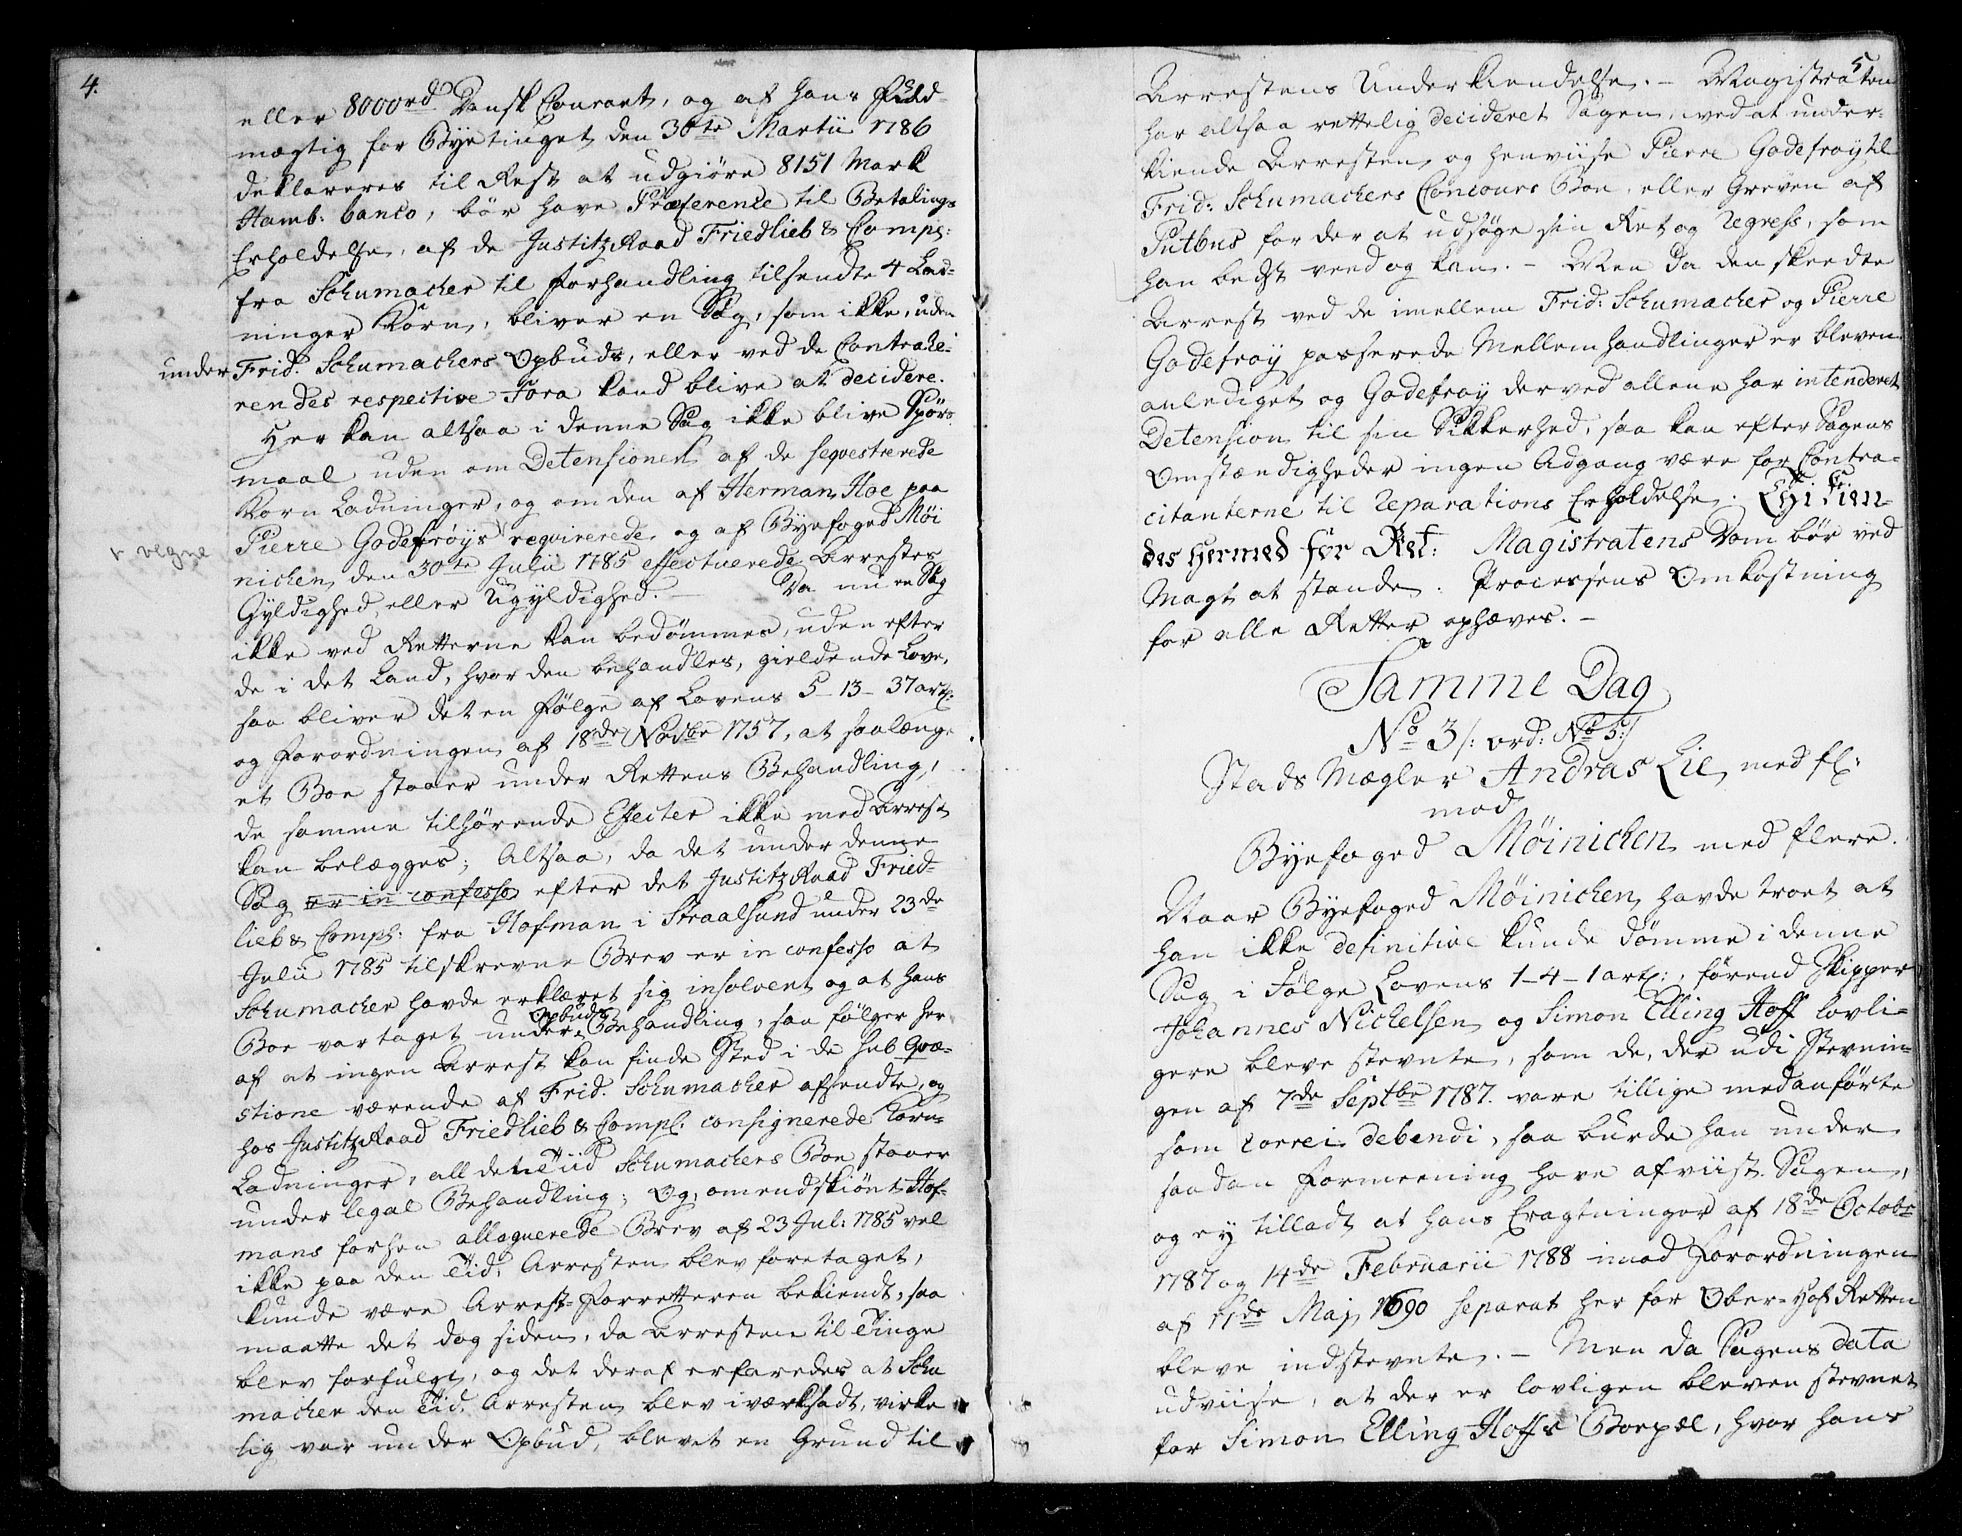 4.
eller 8000rd Dansk Courant, og af hans Fuld-
mægtig for Byetinget den 30te Martii 1786
deklareres til Rest at udgiøre 8151 Mark
Hamb: banco, bør have Præference til Betalings
Erholdelse, af de JustitzRaad Friedlieb & Comp:
fra Schumacher til Forhandling tilsendte 4 Lad-
ninger Korn, bliver en Sag, som ikke, uden
under Frid. Schumachers Opbuds, eller ved de Contrahe-
rendes respective Fora kand blive at decidere.
Her kan altsaa i denne Sag ikke blive Spörs-
maal uden om Detensionen af de seqvestrerede
Korn Ladninger, og om den af Herman Hoe paa
Pierre Godefröys reqvirerede og af Byefoged Möi
r vegne
nichen den 30te Julii 1785 effectuerede Arrestes
Gyldighed eller Ugyldighed. — Da nu en Sag
ikke ved Retterne kan bedömmes, uden efter
de i det Land, hvor den behandles, gieldende Love,
saa bliver det en Følge af Lovens 5-13-37 art:
og Forordningen af 18de Novbr 1757, at saalænge
et Boe staaer under Rettens Behandling,
de samme tilhørende Effecter ikke med Arrest
kan belægges; Altsaa, da det under denne
Sag er in confesso efter det JustitzRaad Fried-
lieb & Comp: fra Hofman i Straalsund under 23de
Julii 1785 tilskrevne Brev er in confesso at
Schumacher havde erklæret sig insolvent og at hans
Boe var taget under Opbuds Behandling, saa følger her
af at ingen Arrest kan finde Sted i de sub Qvæ-
stione værende af Frid. Schumacher afsendte, og
hos JustitzRaad Friedlieb & Comp. consignerede Korn-
Ladninger, all den Tiid Schumachers Boe staaer
under legal Behandling; Og, omendskiönt Hof-
mans forhen alleguerede Brev af 23 Jul: 1785 vel
ikke paa den Tid, Arresten blev foretaget,
kunde være Arrest-Forretteren bekiendt, saa
maatte det dog siden, da Arresten til Tinge
blev forfulgt, og det deraf erfaredes at Schu
macher den Tid Arresten blev iværksadt, virke
lig var under Opbud, blevet en Grund til
5
Arrestens Underkiendelse. — Magistraten
har altsaa rettelig decideret Sagen, ved at under-
kiende Arresten, og henviise Pierre Godefroy til
Frid: Schumachers Concours Boe, eller Greven af
Putbus for der at udsøge sin Ret og Regress, som
han bedst veed og kan. — Men da den skeedte
Arrest ved de imellem Frid: Schumacher og Pierre
Godefroy passerede Mellemhandlinger er bleven
anlediget og Godefroy derved allene har intenderet
Detension til sin Sikkerhed, saa kan efter Sagens
Omstændigheder ingen Adgang være for Contra-
citanterne til Reparations Erholdelse. Thi kien-
des hermed for Ret: Magistratens Dom bør ved
Magt at stande. Processens Omkostning
for alle Retter ophæves. —
Samme Dag
No 3 /: ord: No 5 :/
Stads Mægler Andras Lie med fl:
mod
Byefoged Möinichen med flere.
Naar Byefoged Möinichen havde troet at
han ikke definitive kunde dömme i denne
Sag i Følge Lovens 1-4-1 art:, førend Skipper
Johannes Nichelsen og Simon Elling Hoff lovli-
gere bleve stevnte, som de, der udi Stevnin-
gen af 7de Septbr 1787. vare tillige medanførte
som correi debendi, saa burde han under
saadan Formeening have afviist Sagen,
og ey tilladt at hans Eragtninger af 18de Octobr
1787 og 14de Februarii 1788 imod Forordningen
af 11de Maj 1690 separat her for Ober-Hof Retten
bleve indstevnte. — Men da Sagens data
udviise, at der er lovligen bleven stevnet
for Simon Elling Hoffs Boepæl, hvor hans